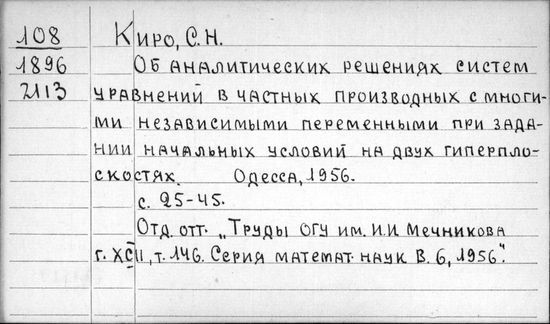 108
1896
2113
Киро, С. Н.
Об аналитических решениях систем
уравнений в частных производных с многи-
ми независимыми переменными при зада-
нии начальных условий на двух гиперпло-
скостях. Одесса, 1956.
с. 25-45.
Отд. отт. „Труды ОГУ им. И.И Мечникова
г. XCII, т. 146. Серия математ. наук В. 6, 1956".